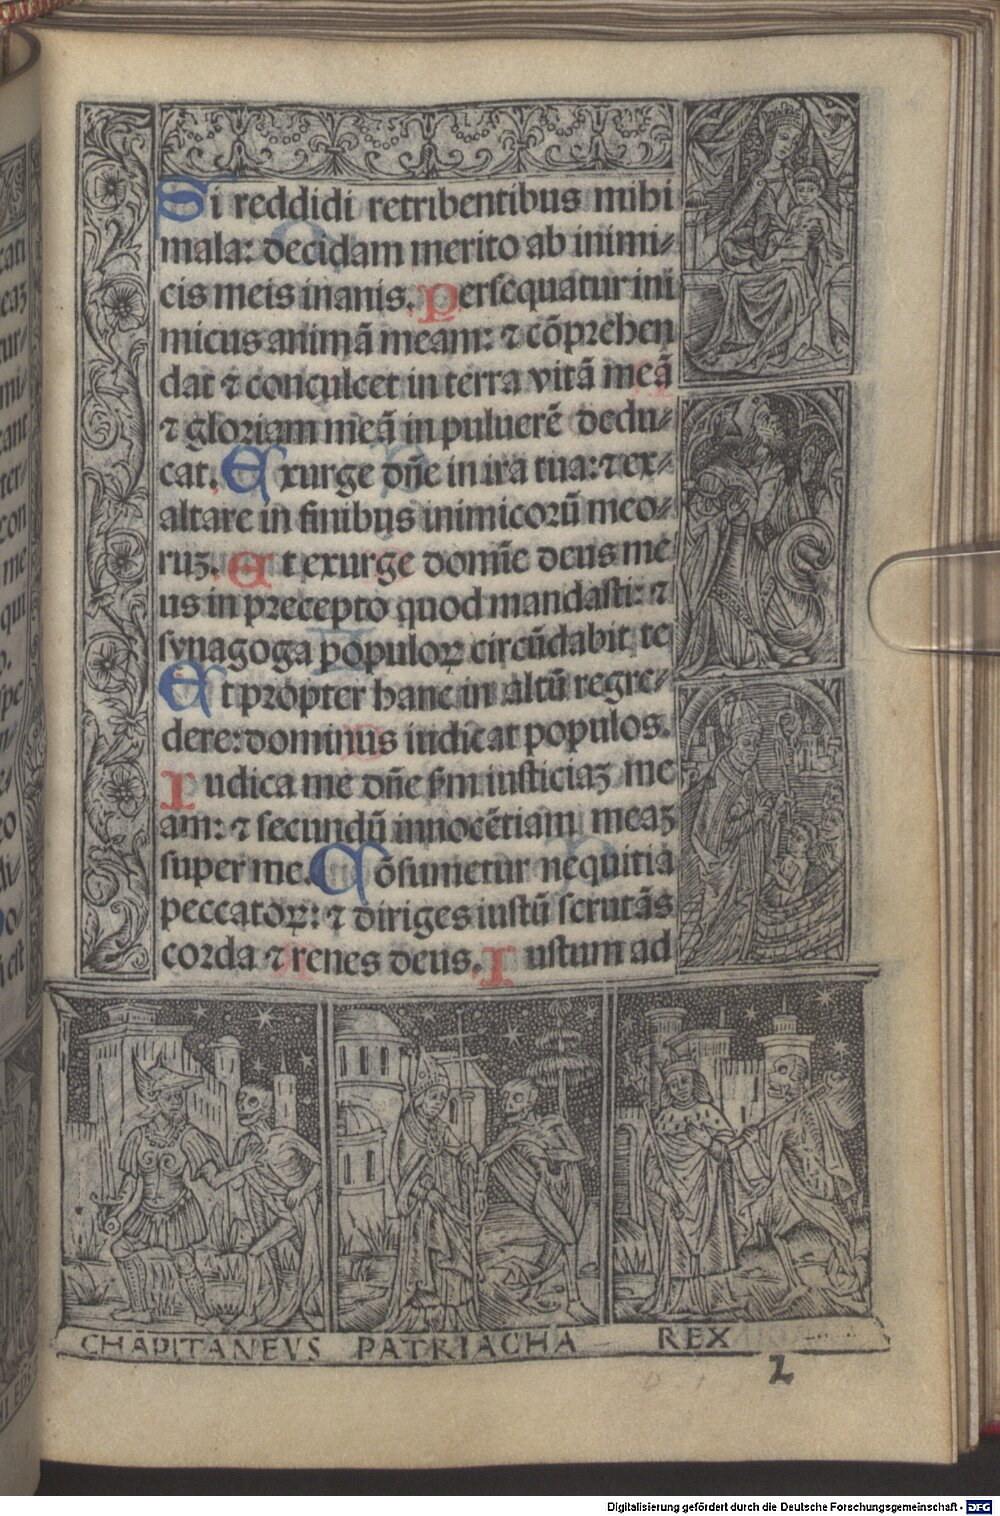 Si reddidi retribentibus mihi
mala: decidam merito ab inimi⸗
cis meis inanis. Persequatur ini
micus animã meam: ⁊ cõprehen
dat ⁊ conculcet in terra vitã meã
⁊ gloriam meã in puluerẽ dedu⸗
cat. Exurge dñe in ira tua: ⁊ ex⸗
altare in finibus inimicorũ meo⸗
ruꝫ. Et exurge domĩe deus me
us in precepto quod mandasti: ⁊
synagoga populoꝝ circũdabit te
Et propter hanc in altũ regre⸗
dere: dominus iudicat populos.
Iudica me dñe ẜm iusticiaꝫ me
am: ⁊ secundũ innocẽtiam meaꝫ
super me. Cõsumetur nequitia
peccatoꝝ: ⁊ diriges iustũ scrutãs
corda ⁊ renes deus. Iustum ad
CHAPITANEVS PATRIACHA REX
2
Digitalisierung gefördert durch die Deutsche Forschungsgemeinschaft - DFG